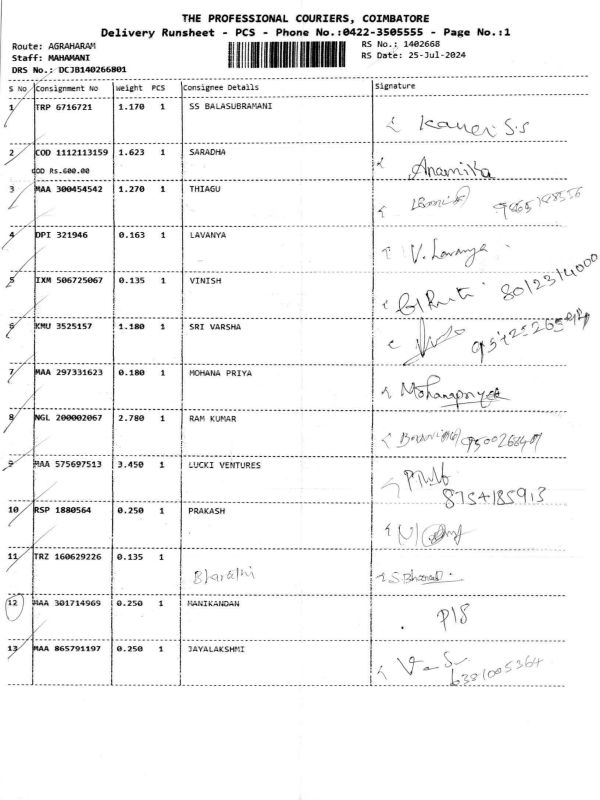 THE PROFESSIONAL COURIERS, COIMBATORE
Delivery Runsheet - PCS - Phone No.:0422-3505555 - Page No.:1
Route: AGRAHARAM RS No.: 1402668
Staff: MAHAMANI RS Date: 25-Jul-2024
DRS No.: DCJB140266801
S No Consignment No Weight PCS Consignee Details Signature
1 TRP 6716721 1.170 1 SS BALASUBRAMANI
S.S
2 COD 1112113159 1.623 1 SARADHA
Anamika
COD Rs.600.00
3 MAA 300454542 1.270 1 THIAGU
4 DPI 321946 0.163 1 LAVANYA
V. Lavanya
5 IXM 506725067 0.135 1 VINISH
8012314000
6 KMU 3525157 1.180 1 SRI VARSHA
7 MAA 297331623 0.180 1 MOHANA PRIYA
Mohanapriya
8 NGL 200002067 2.780 1 RAM KUMAR
9 MAA 575697513 3.450 1 LUCKI VENTURES
8754185913
10 RSP 1880564 0.250 1 PRAKASH
11 TRZ 160629226 0.135 1
Bharathi
12 MAA 301714969 0.250 1 MANIKANDAN
P/S
13 MAA 865791197 0.250 1 JAYALAKSHMI
6381005364